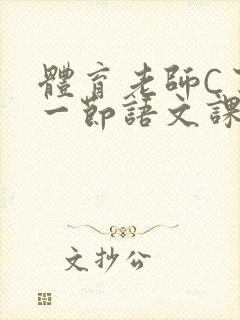 體育老師C
一節語文課
文抄公